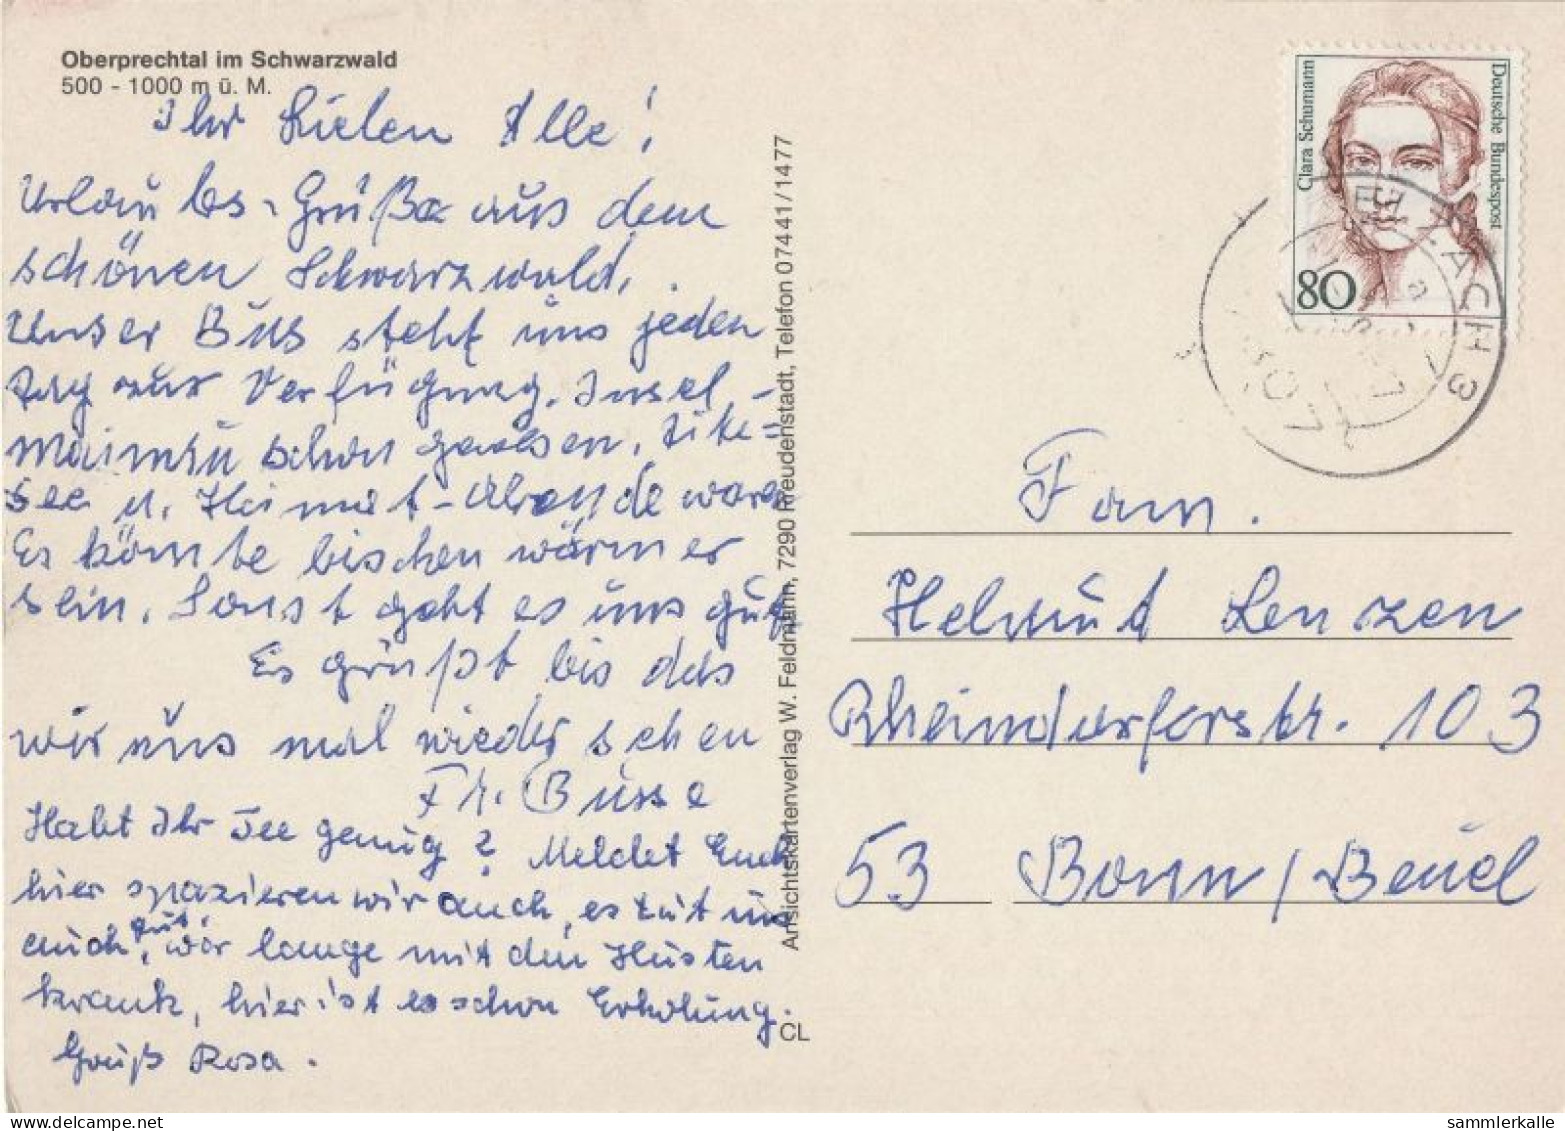 Oberprechtal im Schwarzwald
500 - 1000 m ü. M.
Ihr Lieben Alle!
Urlaubs-Grüße aus dem
schönen Schwarzwald.
Unser Bus steht uns jeden
Tag zur Verfügung. Insel-
Mainau schon gewesen, Titi-
see u. Heimat-Abende waren
Es könnte bischen wärmer
sein. Sonst geht es uns gut
Es grüßt bis das
wir uns mal wieder sehen
Fr. Busse
Habt Ihr Tee genug? Meldet Euch
hier spazieren wir auch, es tut uns
auch gut, war lange mit den Husten
krank, hier ist es schon Erholung.
Gruß Rosa.
Ansichtskartenverlag W. Feldmann, 7290 Freudenstadt, Telefon 07441/1477
CL
Clara Schumann
Deutsche Bundespost
80
ELZACH 3
a
Fam.
Helmut Lenzen
Rheindorferstr. 103
53 Bonn/Beuel
delcampe.net
sammlerkalle